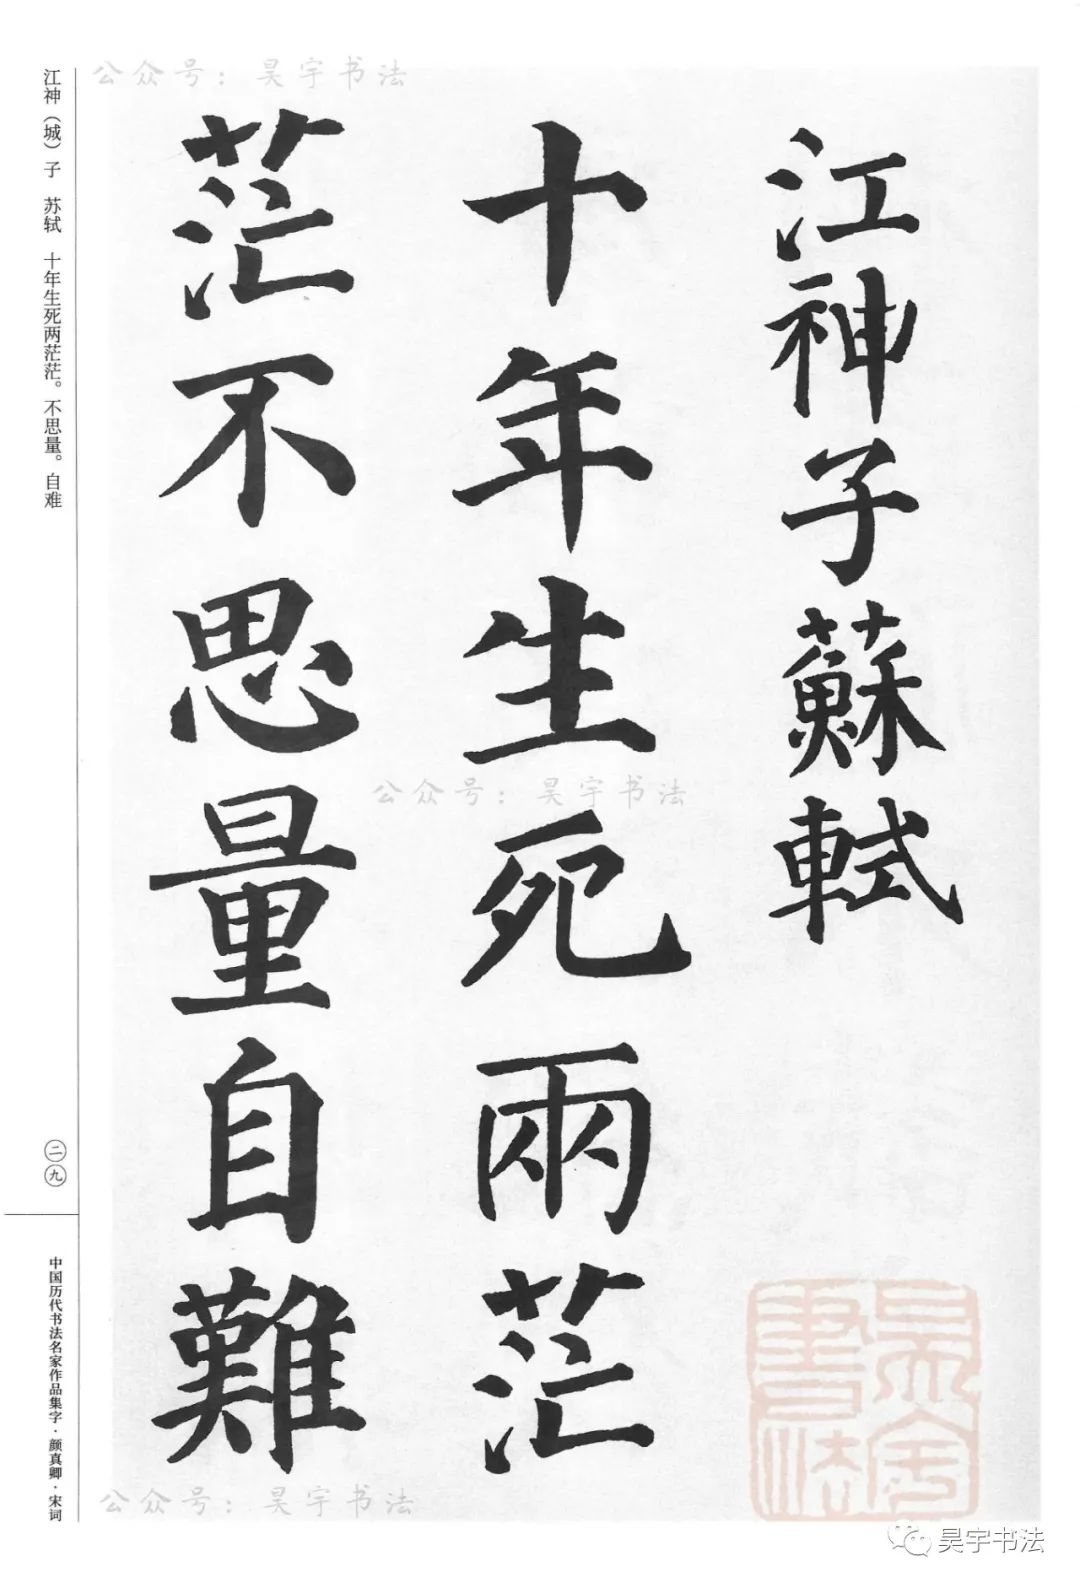 江神子蘇軾
十年生死兩茫
茫不思量自難
江神（城）子　苏轼　十年生死两茫茫。不思量。自难
二九
中国历代书法名家作品集字·颜真卿·宋词
公众号：昊宇书法
公众号：昊宇书法
公众号：昊宇书法
昊宇書法
昊宇书法